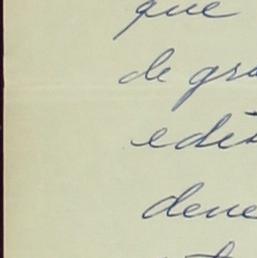 que
de gra
edit
dene